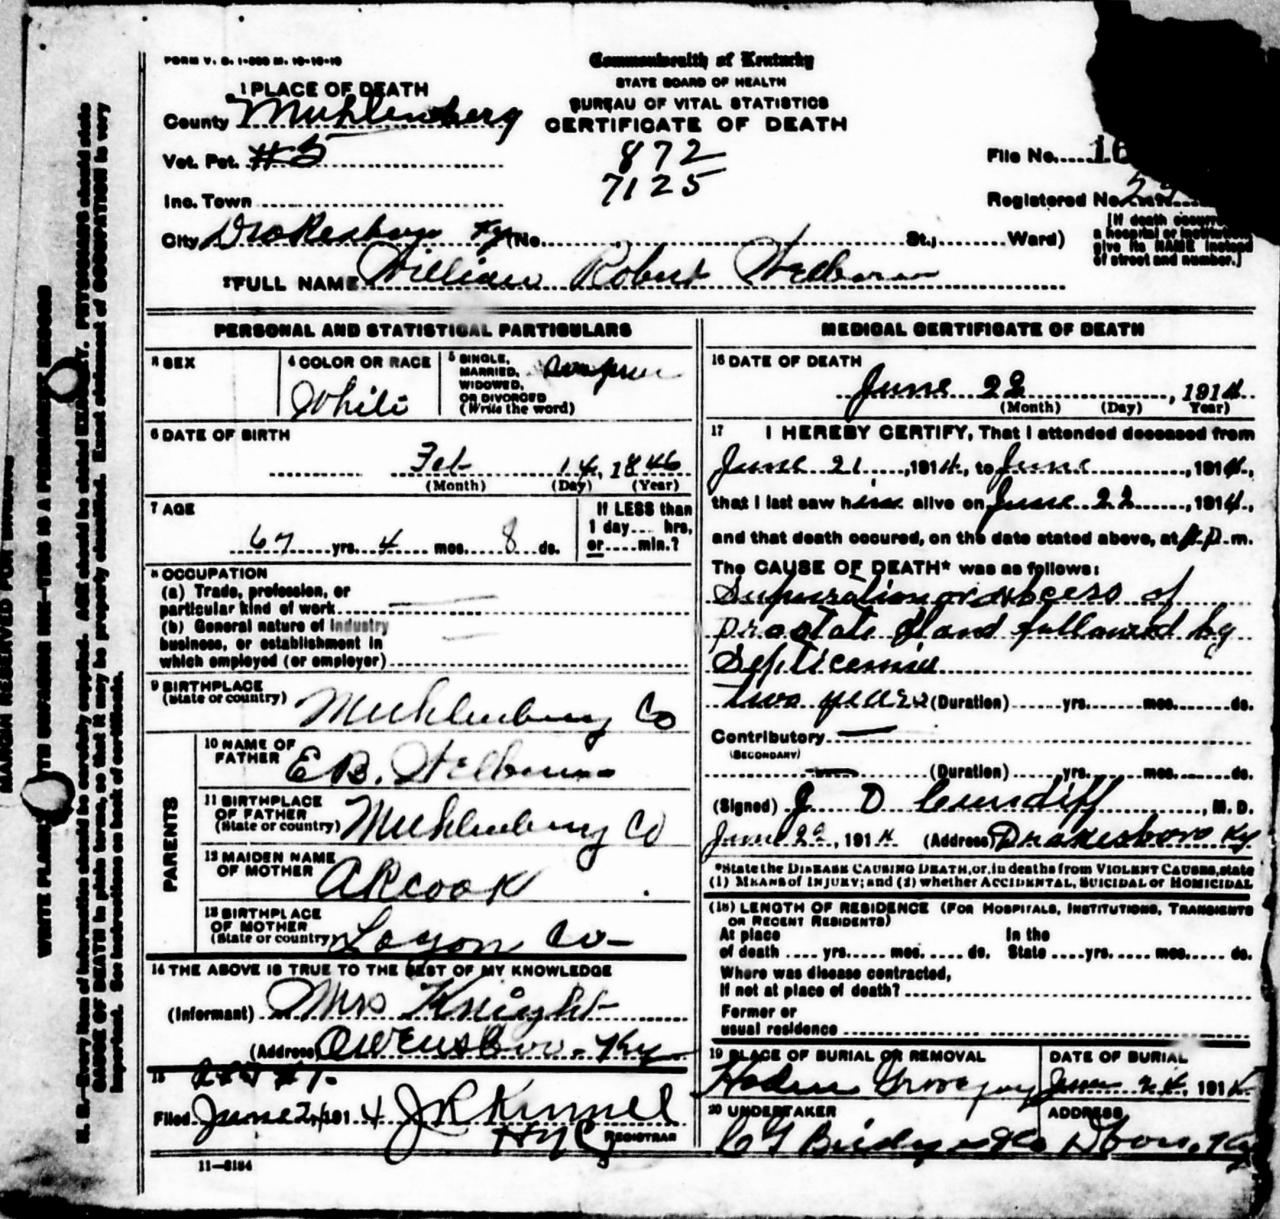 FORM V. S. 1-
Commonwealth of Kentucky
STATE BOARD OF HEALTH
BUREAU OF VITAL STATISTICS
CERTIFICATE OF DEATH
1 PLACE OF DEATH
County Muhlenberg
Vot. Pct. #5
872
7125
File No. 16
Registered No.
Inc. Town
City Drakesboro Ky (No. St.; Ward)
[If death occurr
a hospital or institution
give its NAME instead
of street and number.]
2 FULL NAME William Robert Welborn
PERSONAL AND STATISTICAL PARTICULARS
3 SEX
4 COLOR OR RACE
White
5 SINGLE,
MARRIED,
WIDOWED,
OR DIVORCED
(Write the word)
6 DATE OF BIRTH
Feb 14, 1846
(Month) (Day) (Year)
7 AGE
67 yrs. 4 mos. 8 ds.
If LESS than
1 day.... hrs,
or.....min.?
8 OCCUPATION
(a) Trade, profession, or
particular kind of work
(b) General nature of industry
business, or establishment in
which employed (or employer)
9 BIRTHPLACE
(State or country)
Muhlenberg Co
PARENTS
10 NAME OF
FATHER
E B. Welborn
11 BIRTHPLACE
OF FATHER
(State or country)
Muhlenberg Co
12 MAIDEN NAME
OF MOTHER
13 BIRTHPLACE
OF MOTHER
(State or country)
Co
14 THE ABOVE IS TRUE TO THE BEST OF MY KNOWLEDGE
(Informant) Mrs Knight
(Address) Owensboro. Ky
15
Filed June 24 1914 J R Kimmel
REGISTRAR
11-5184
MEDICAL CERTIFICATE OF DEATH
16 DATE OF DEATH
June 22, 1914
(Month) (Day) Year)
17 I HEREBY CERTIFY, That I attended deceased from
June 21, 1914, to June, 1914,
that I last saw him alive on June 22, 1914,
and that death occured, on the date stated above, at m.
The CAUSE OF DEATH* was as follows:
Supuration or abcess of
prostate gland followed by
Septicemia
two years (Duration) yrs. mos. ds.
Contributory
(SECONDARY)
(Duration) yrs. mos. ds.
(Signed) J D Cundiff, M. D.
June 22, 1914 (Address) Drakesboro Ky
*State the DISEASE CAUSING DEATH, or, in deaths from VIOLENT CAUSES, state
(1) MEANS of INJURY; and (2) whether ACCIDENTAL, SUICIDAL or HOMICIDAL
(18) LENGTH OF RESIDENCE (FOR HOSPITALS, INSTITUTIONS, TRANSIENTS
OR RECENT RESIDENTS)
At place
of death yrs. mos. ds.
In the
State yrs. mos. ds.
Where was disease contracted,
If not at place of death?
Former or
usual residence
19 PLACE OF BURIAL OR REMOVAL
DATE OF BURIAL
June 24, 1914
20 UNDERTAKER
ADDRESS
Ky
N. B.—Every item of information should be carefully supplied. AGE should be stated EXACTLY. PHYSICIANS should state
CAUSE OF DEATH in plain terms, so that it may be properly classified. Exact statement of OCCUPATION is very
important. See instructions on back of certificate.